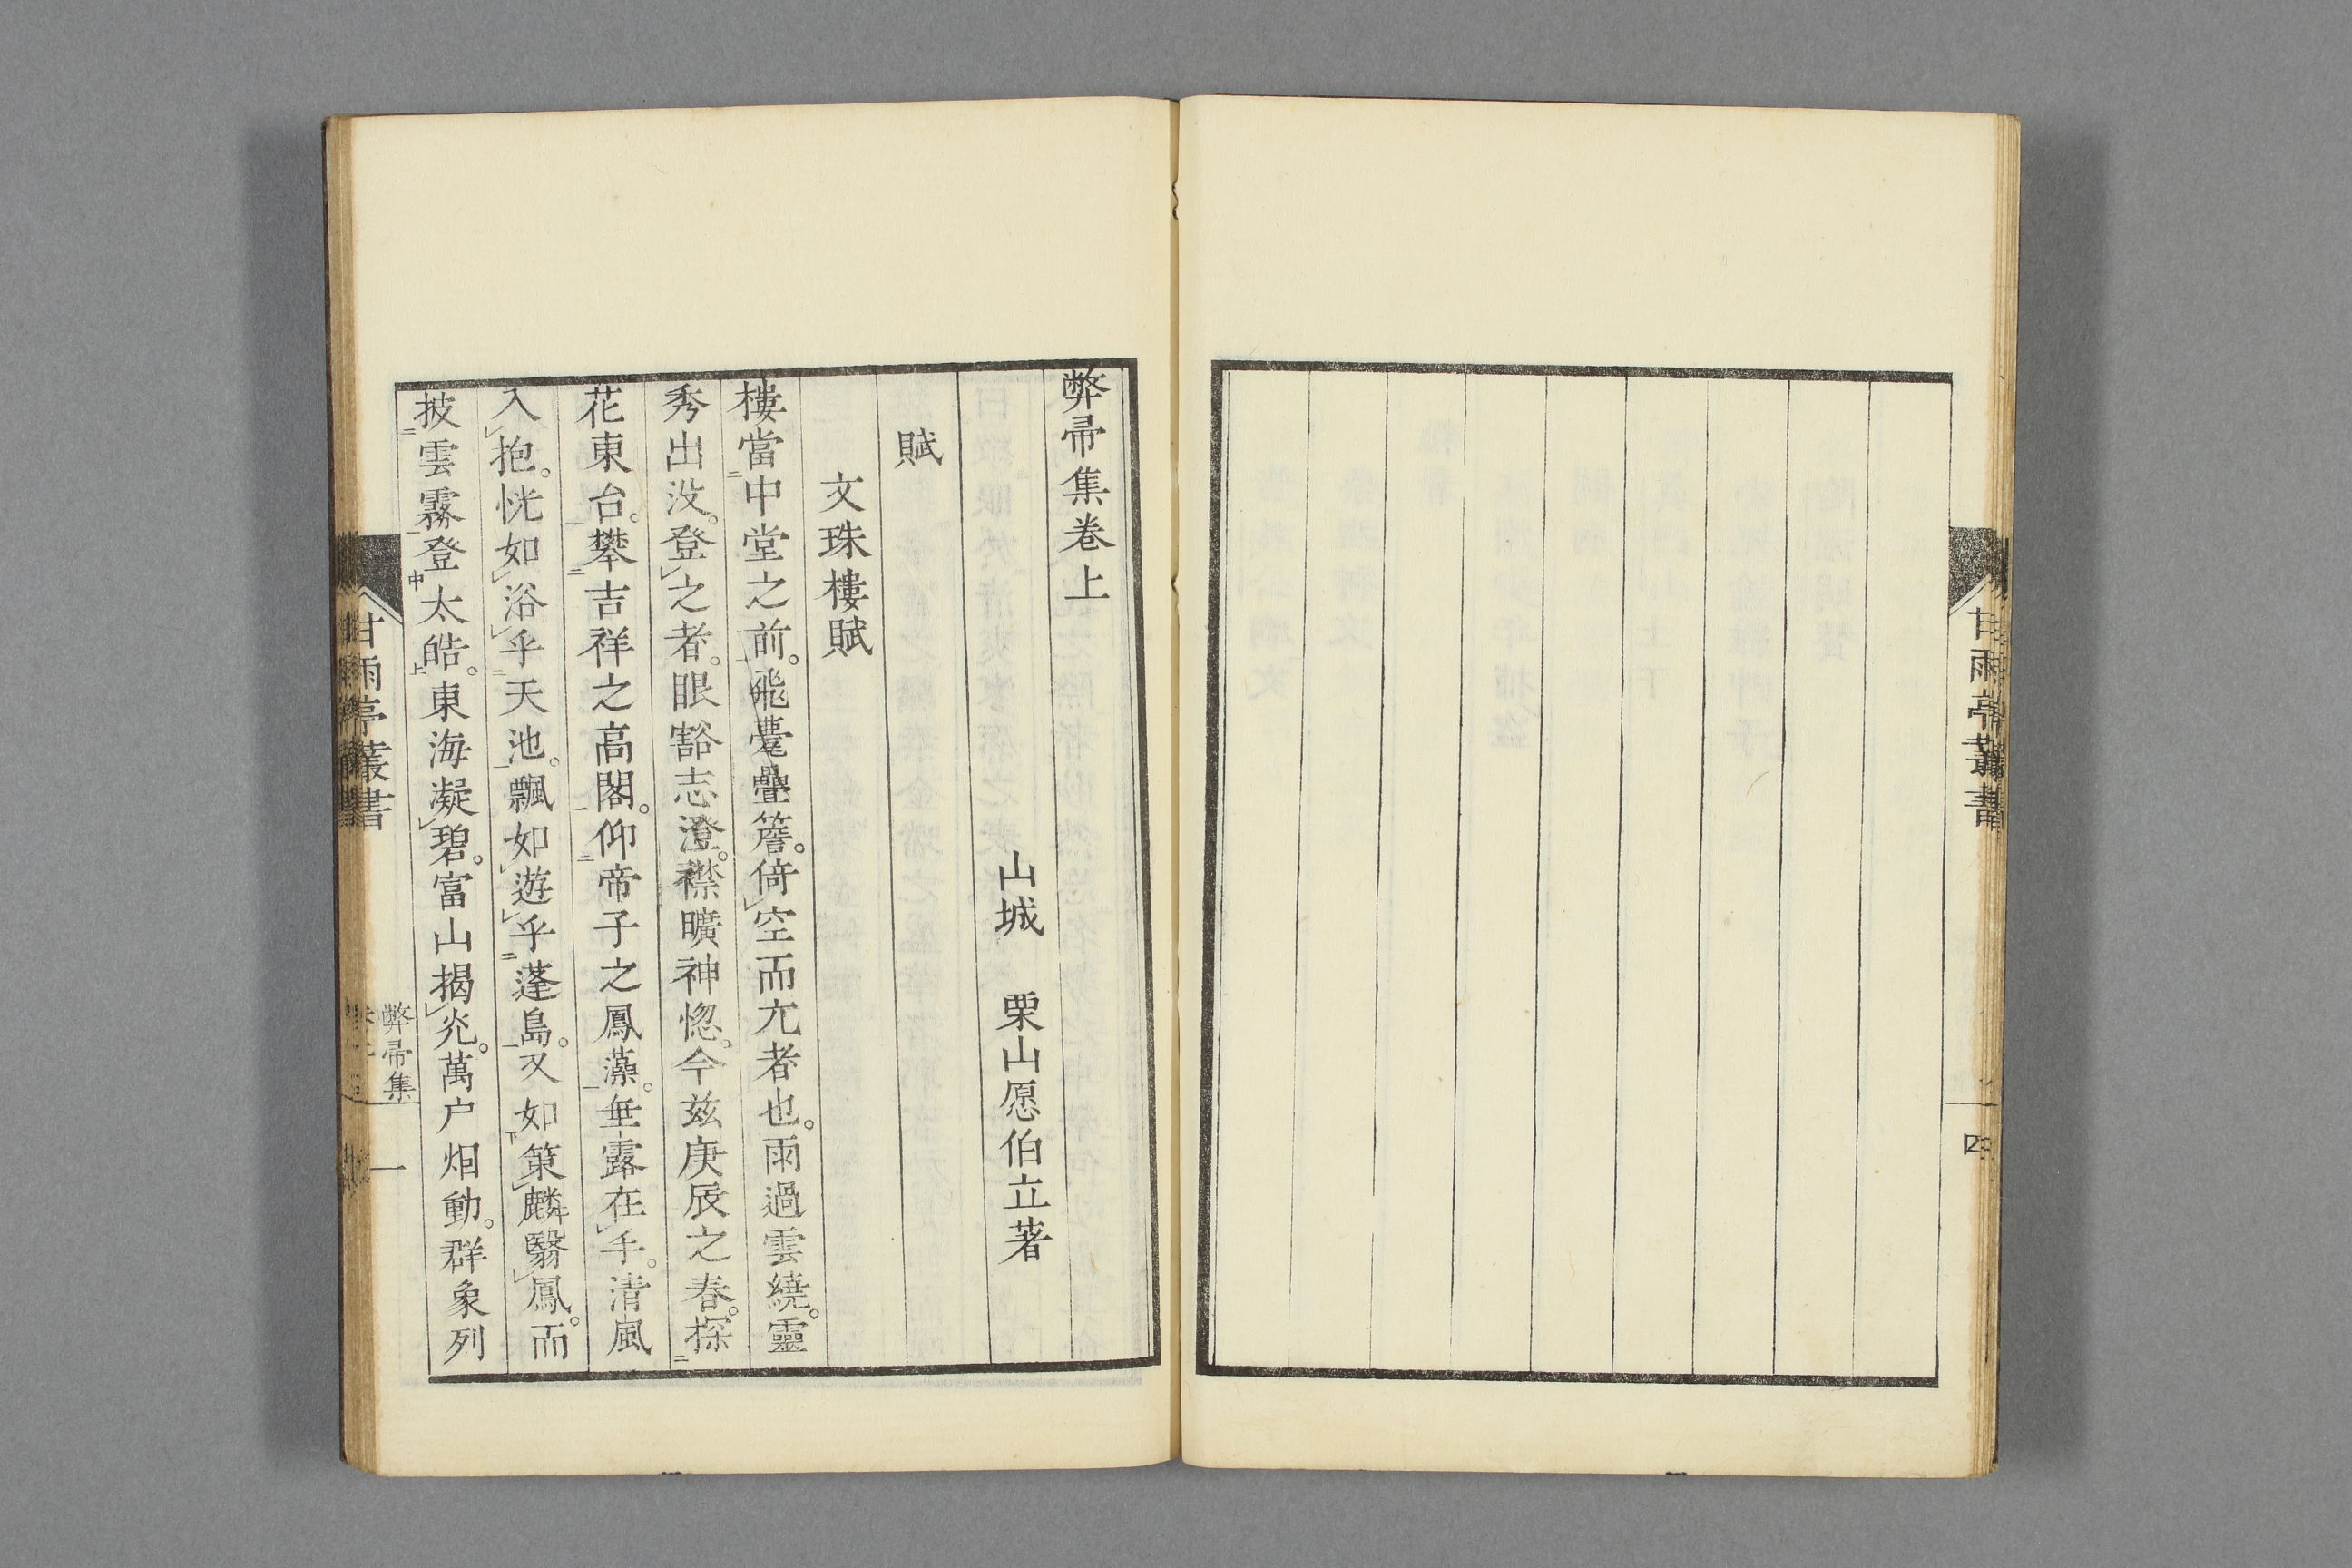 甘雨亭叢書
四
弊帚集卷上
山城　栗山愿伯立著
賦
文珠樓賦
樓當中堂之前。飛甍疊簷。倚空而立者也。雨過雲繞。靈
秀出没。登之者。眼豁志澄。襟曠神惚。今茲庚辰之春。探
花東台。攀吉祥之高閣。仰帝子之鳳藻。垂露在手。清風
入抱。恍如浴乎天池。飄如遊乎蓬島。又如策麟翳鳳。而
披雲霧登太皓。東海凝碧。富山揭光。萬户烟動。群象列
甘雨亭叢書
弊帚集
一